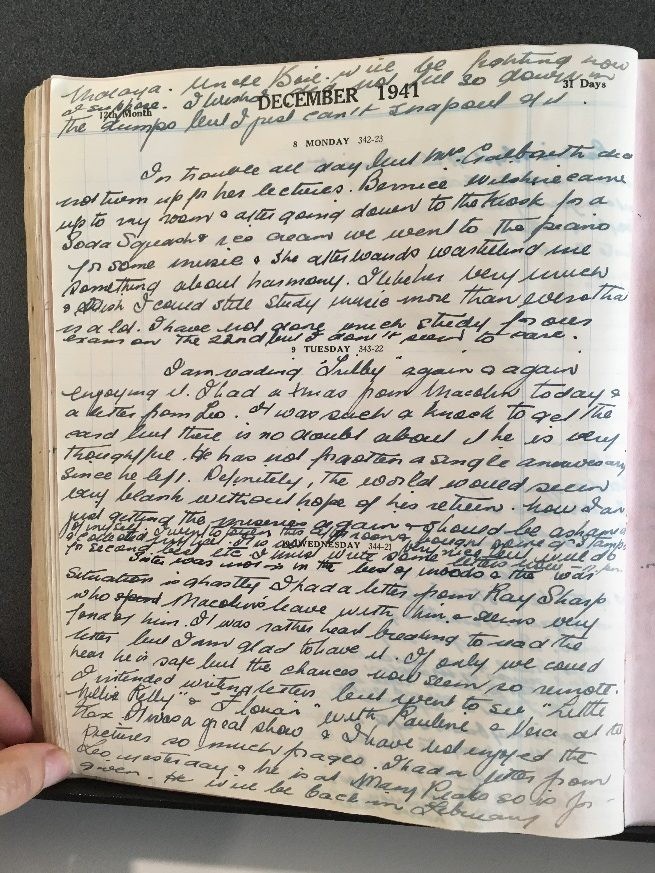 Malaya. Uncle will be fighting now
I suppose. I wish I did not feel so down in
12th Month DECEMBER 1941 31 Days
the dumps but I just can't snap out of it.
8 MONDAY 342-23
In trouble all day but Mrs. Galbraith did
not turn up for her lectures. Bernice Wilshire came
up to my room & after going down to the Kiosk for a
Soda Squash & ice cream we went to the piano
for some music & she afterwards was telling me
something about harmony. I very much
& wish I could still study music more than ever
is a ld. I have not done much study for our
exam on the 22nd but I don't seem to care.
9 TUESDAY 343-22
I am reading "Trilby" again & again
enjoying it. I had a Xmas from Malcolm today &
a letter from Leo. It was such a knock to get the
card but there is no doubt about it he is very
thoughtful. He has not forgotten a single anniversary
since he left. Definitely, the world would seem
very blank without hope of his return. Now I am
just getting the miseries again & should be ashamed
of myself.
for second best etc I must write some letters
10 WEDNESDAY 344-21
was in the of moods & the
situation is ghastly. I had a letter from Ray Sharp
who spent Malcolm's leave with him & seems very
fond of him. I was rather heart breaking to read the
letter but I am glad to have it. If only we could
hear he is safe but the chances now seem so remote.
I intended writing letters but went to see "Little
Nellie Kelly" & with Pauline & Vera at the
It was a great show & I have not enjoyed the
pictures so much for ages. I had a letter from
Leo yesterday & he is at Many Peaks so is for-
given. He will be back in February